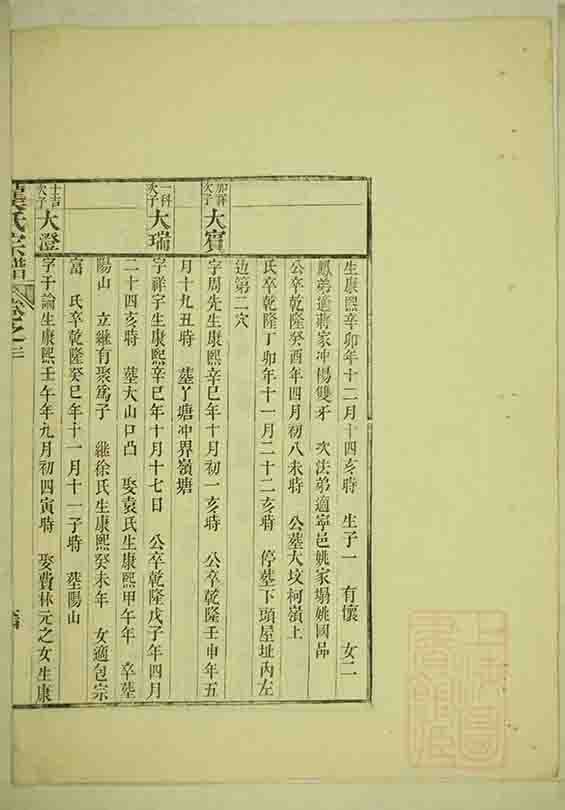 生康熙辛卯年十二月十四亥時 生子一 有懷 女二
鳳弟適蔣家冲楊雙牙 次法弟適寧邑姚家塌姚國品
公卒乾隆癸酉年四月初八未時 公塟大坟柯嶺上
氏卒乾隆丁卯年十一月二十二亥時 停塟下頭屋址內左
边第二穴
加祥次子 大賓 字周先生康熙辛巳年十月初一亥時 公卒乾隆壬申年五
月十九丑時 塟丫塘冲界嶺塘
一科次子 大瑞 字祥宇生康熙辛巳年十月十七日 公卒乾隆戊子年四月
二十四亥時 塟大山口凸 娶袁氏生康熙甲午年 卒塟
陽山 立継有聚為子 継徐氏生康熙癸未年 女適包宗
富 氏卒乾隆癸巳年十一月十一子時 塟陽山
士吉次子 大澄 字于論生康熙壬午年九月初四寅時 娶費林元之女生康
氏宗譜 卷之三